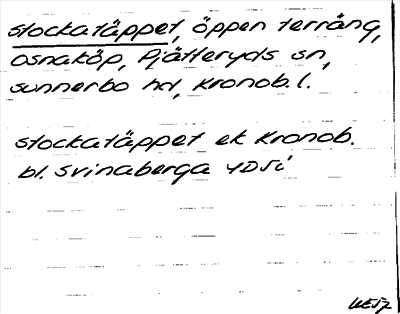 stockatäppet, öppen terräng,
Osnaköp, Pjätteryds sn,
Sunnerbo hd, Kronob. l.
stockatäppet ek Kronob.
bl. Svinaberga 4D5i